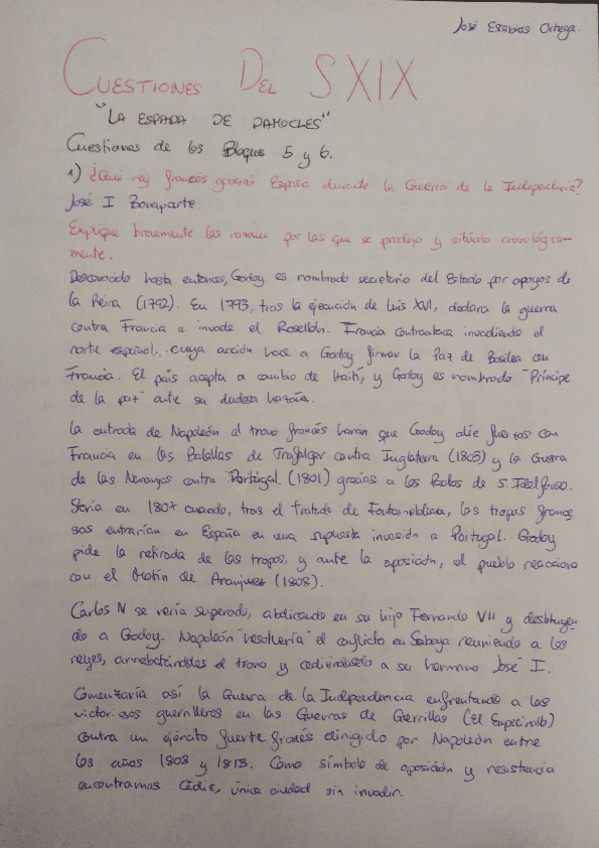 José Esabias Ortega.
CUESTIONES DEL S.XIX
"LA ESPADA DE DAMOCLES"
Cuestiones de los Bloques 5 y 6.
1) ¿Qué rey francés gobernó España durante la Guerra de la Independencia?
José I Bonaparte
Explique brevemente las razones por las que se produjo y sitúala cronológica-
mente.
Desconocido hasta entonces, Godoy es nombrado secretario del Estado por apoyos de
la Reina (1792). En 1793, tras la ejecución de Luis XVI, declara la guerra
contra Francia e invade el Rosellón. Francia contraataca invadiendo el
norte español, cuya acción hace a Godoy firmar la Paz de Basilea con
Francia. El país acepta a cambio de Haití, y Godoy es nombrado "Príncipe
de la paz" ante su dudosa hazaña.
La entrada de Napoleón al trono francés harán que Godoy alíe fuerzas con
Francia en las Batallas de Trafalgar contra Inglaterra (1805) y la Guerra
de las Naranjas contra Portugal (1801) gracias a los Pactos de S. Ildelfonso.
Sería en 1807 cuando, tras el tratado de Fontainebleau, las tropas france
sas entrarían en España en una supuesta invasión a Portugal. Godoy
pide la retirada de las tropas, y ante la oposición, el pueblo reacciona
con el Motín de Aranjuez (1808).
Carlos IV se vería superado, abdicando en su hijo Fernando VII y destituyen
do a Godoy. Napoleón "resolvería" el conflicto en Saboya reuniendo a los
reyes, arrebatándoles el trono y cediéndoselo a su hermano José I.
Comenzaría así la Guerra de la Independencia enfrentando a los
victoriosos guerrilleros en las Guerras de Guerrillas (El Empecinado)
contra un ejército fuerte francés dirigido por Napoleón entre
los años 1808 y 1813. Como símbolo de oposición y resistencia
encontramos Cádiz, única ciudad sin invadir.